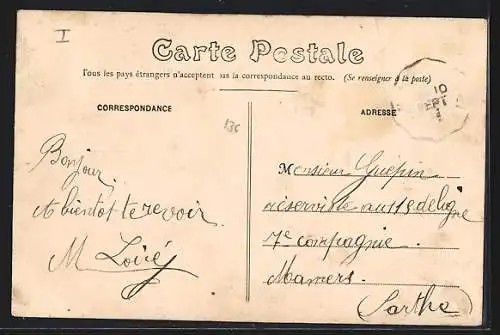 I
Carte Postale
Tous les pays étrangers n'acceptent pas la correspondance au recto. (Se renseigner à la poste)
CORRESPONDANCE
ADRESSE
136
Bonjour
A bientot te revoir
M Loiré
Monsieur Guépin
réserviste au 115 de ligne
7e compagnie
Mamers
Sarthe